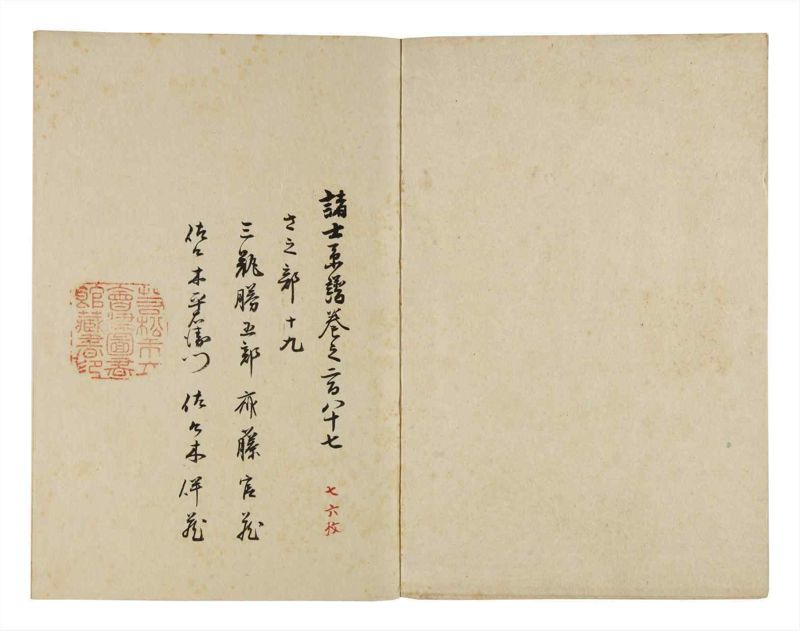 諸士系譜巻之二百八十七
七六枚
さ之部 十九
三瓶勝五郎 斎藤官蔵
佐々木平右衛門 佐々木伴蔵
若松市立
會津圖書
館藏書印